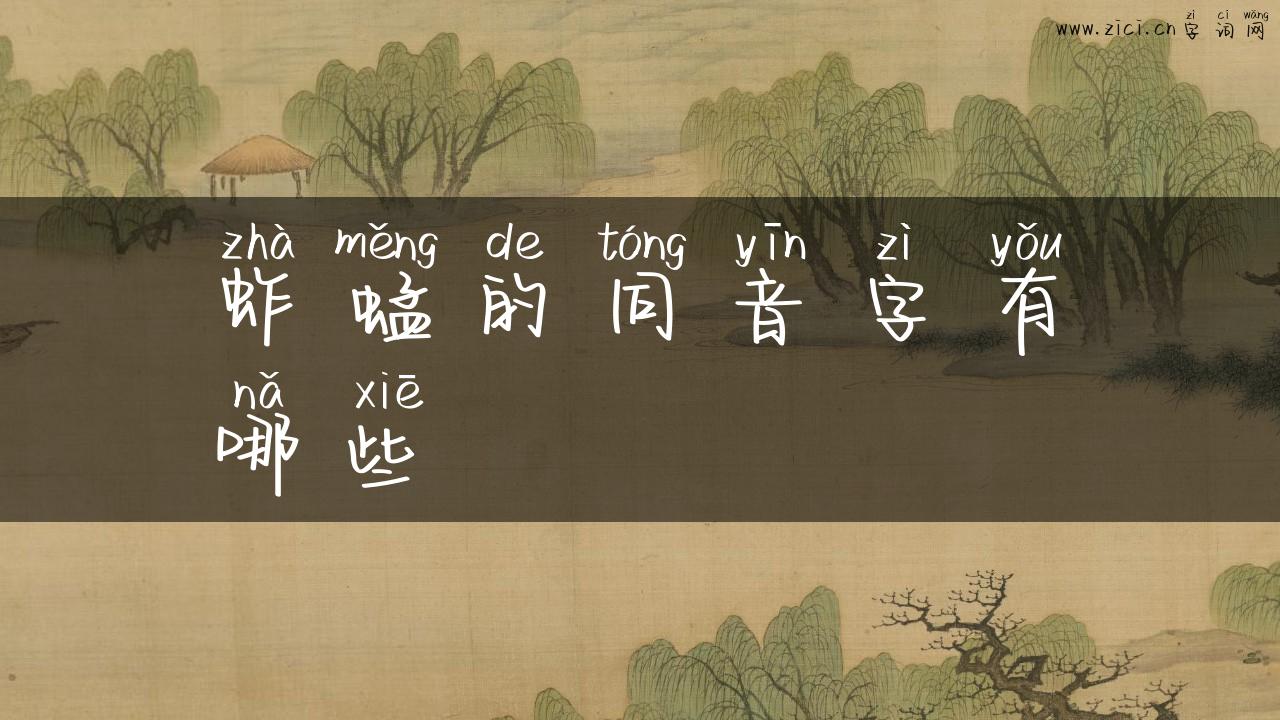 zì cí wǎng
www.zici.cn 字词网
zhà měng de tóng yīn zì yǒu
蚱蜢的同音字有
nǎ xiē
哪些